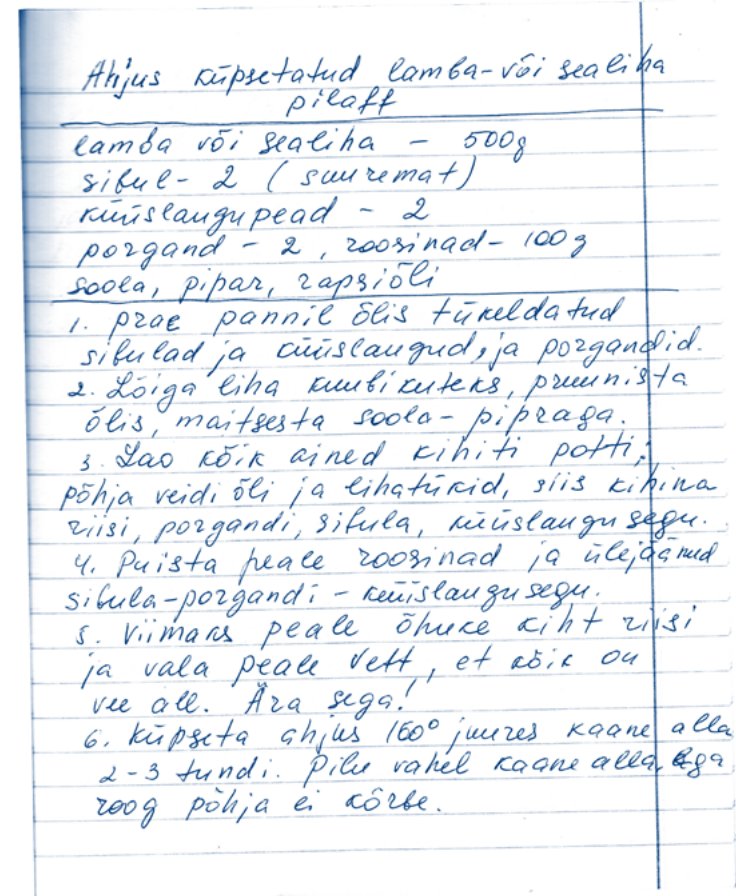 Ahjus küpsetatud lamba-või sealiha
pilaff
lamba või sealiha - 500g
sibul - 2 (suuremat)
küüslaugupead - 2
porgand - 2, roosinad - 100g
soola, pipar, rapsiõli
1. prae pannil õlis tükeldatud
sibulad ja küüslaugud, ja porgandid.
2. Lõiga liha kuubikuteks, pruunista
õlis, maitsesta soola-pipraga.
3. Lao kõik ained kihiti potti;
põhja veidi õli ja lihatükid, siis kihina
riisi, porgandi, sibula, küüslaugu segu.
4. Puista peale roosinad ja ülejäänud
sibula-porgandi-küüslaugusegu.
5. Viimaks peale õhuke kiht riisi
ja vala peale vett, et kõik on
vee all. Ära sega!
6. Küpseta ahjus 160° juures kaane alla
2-3 tundi. Pilu vahel kaane alla, ega
roog põhja ei kõrbe.